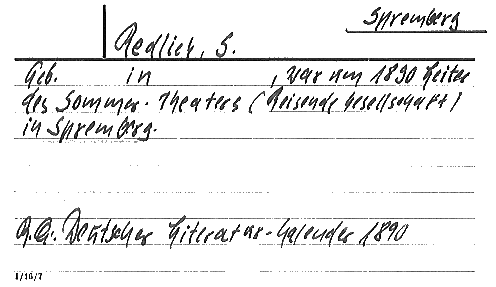 Spremberg
Redlich, S.
Geb. in , war um 1890 Leiter
des Sommer-Theaters (Reisende Gesellschaft)
in Spremberg.
Deutscher Literatur-Kalender 1890